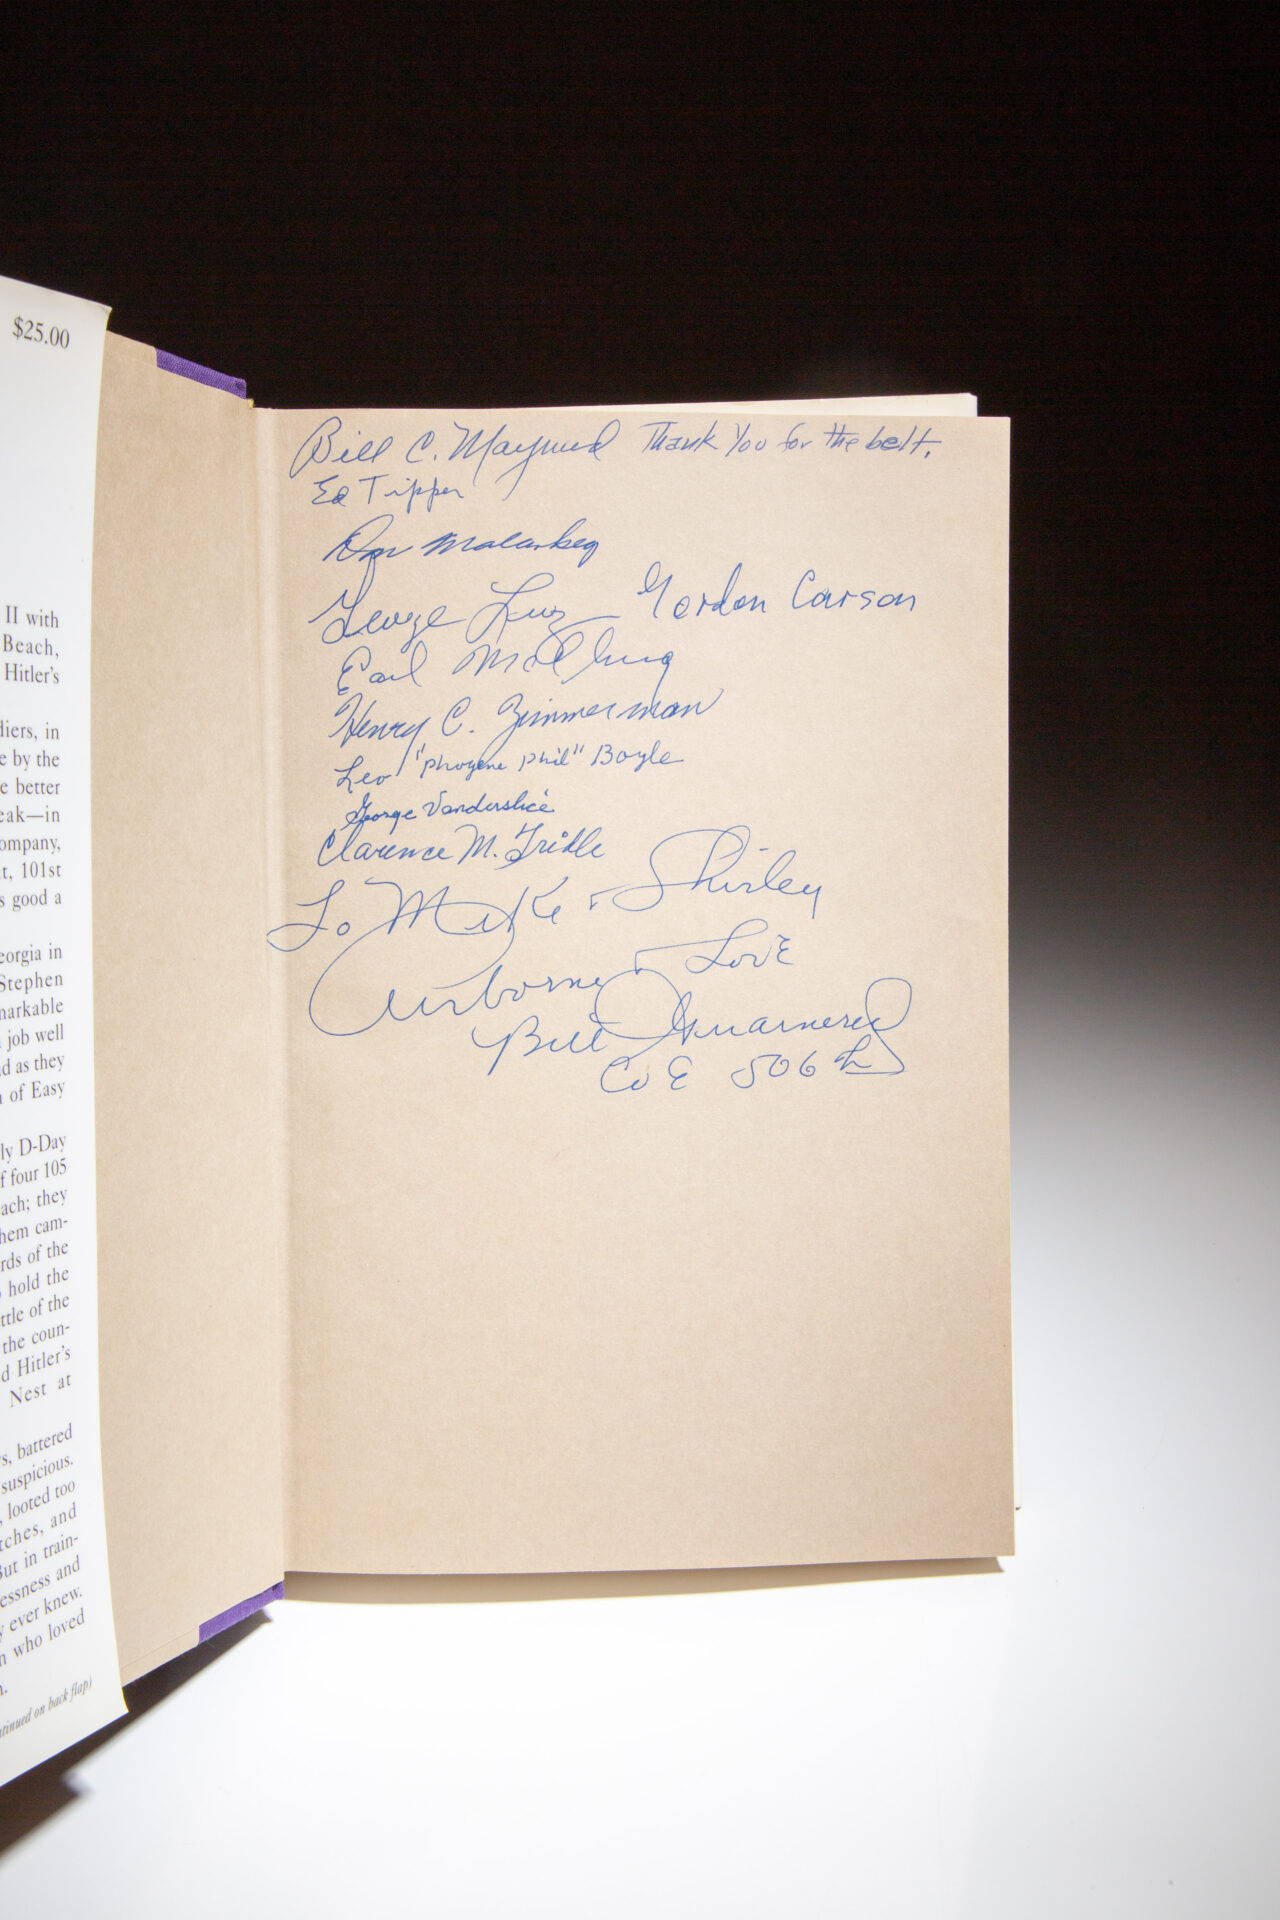 $25.00
II with
Beach,
Hitler's
diers, in
e by the
e better
eak—in
ompany,
t, 101st
s good a
eorgia in
Stephen
markable
job well
d as they
of Easy
ly D-Day
f four 105
ach; they
hem cam-
rds of the
hold the
ttle of the
the coun-
d Hitler's
Nest at
s, battered
suspicious.
, looted too
tches, and
But in train-
essness and
y ever knew.
n who loved
n.
ntinued on back flap)
Bill C. Maynard Thank You for the belt.
Ed Tipper
Don Malarkey
George Luz Gordon Carson
Earl McClung
Henry C. Zimmerman
Leo "Phil" Boyle
George Vanderslice
Clarence M. Tridle
To Mike + Shirley
Airborne + Love
Bill Guarnere
Co E 506th